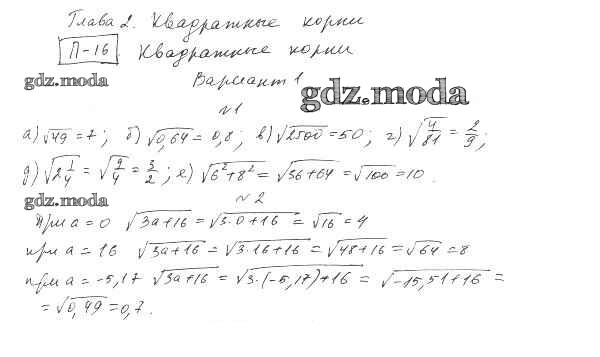 Глава 2. Квадратные корни
П-16 Квадратные корни
gdz.moda Вариант 1
gdz.moda
№1
а) √49 = 7; б) √0,64 = 0,8; в) √2500 = 50; г) √4/81 = 2/9;
д) √2 1/4 = √9/4 = 3/2; е) √6²+8² = √36+64 = √100 = 10.
gdz.moda №2
При а = 0 √3а+16 = √3·0+16 = √16 = 4
при а = 16 √3а+16 = √3·16+16 = √48+16 = √64 = 8
при а = -5,17 √3а+16 = √3·(-5,17)+16 = √-15,51+16 =
= √0,49 = 0,7.